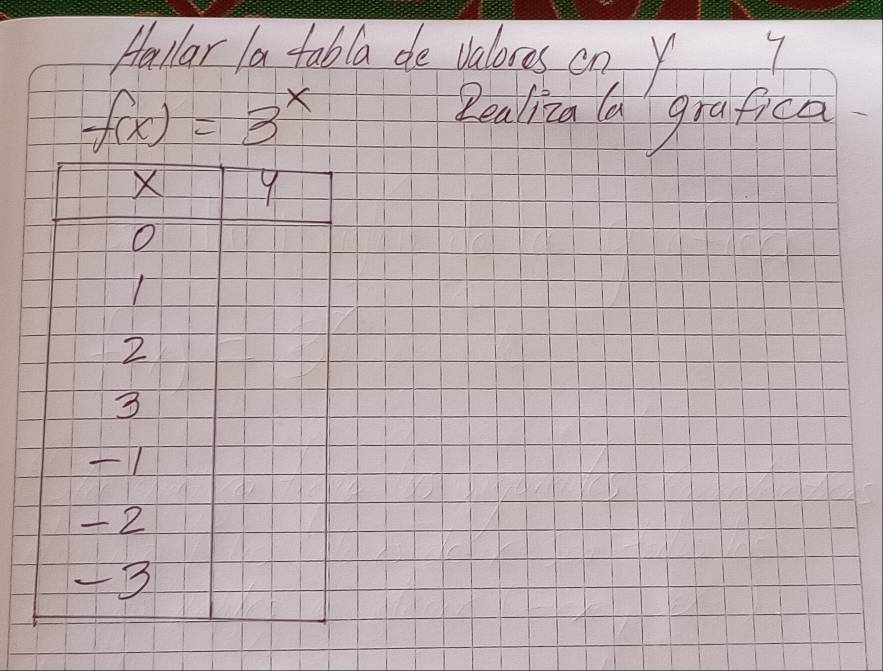 Hallar la tabla de valores en y y
f(x) = 3^x Realiza la grafica -
x y
0
1
2
3
-1
-2
-3